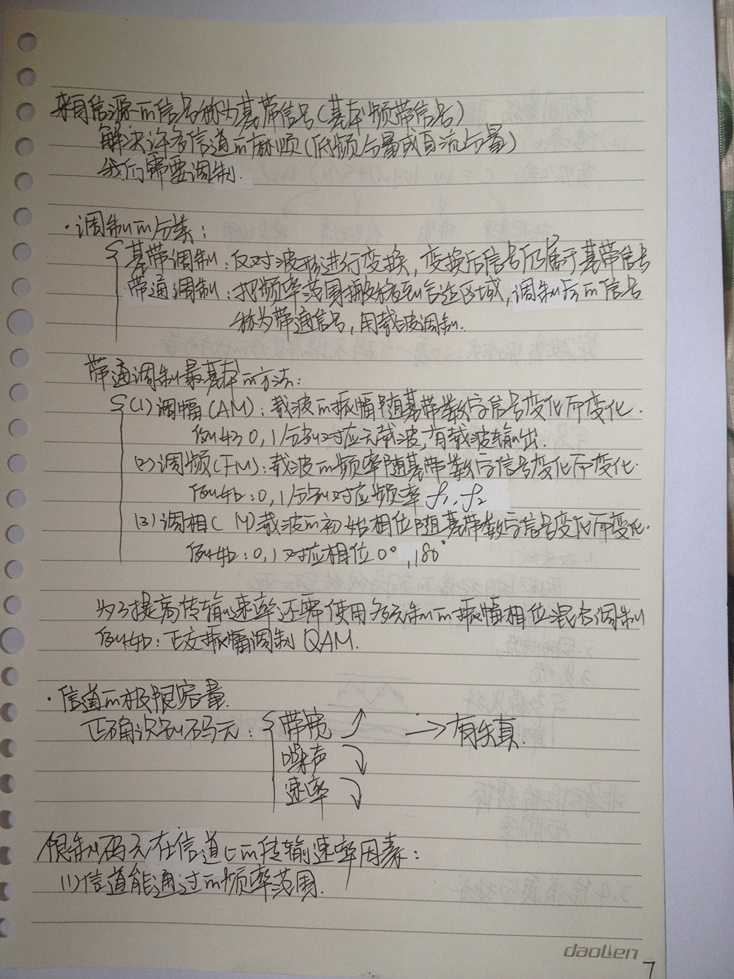 来自信源的信号称为基带信号(基本频带信号)
解决许多信道的麻烦(低频分量或直流分量)
我们需要调制.
·调制的分类:
基带调制:仅对波形进行变换,变换后信号仍属于基带信号
带通调制:把频率范围搬移到合适区域,调制后的信号
称为带通信号,用载波调制.
带通调制最基本的方法:
(1)调幅(AM):载波的振幅随基带数字信号变化而变化.
例如:0,1分别对应无载波,有载波输出.
(2)调频(FM):载波的频率随基带数字信号变化而变化.
例如:0,1分别对应频率 f1, f2
(3)调相( M)载波的初始相位随基带数字信号变化而变化.
例如:0,1对应相位0°,180°
为了提高传输速率还要使用多元制的振幅相位混合调制
例如:正交振幅调制QAM.
·信道的极限容量.
正确识别码元: 带宽↗ →有失真.
噪声↘
速率↘
限制码元在信道上的传输速率因素:
(1)信道能通过的频率范围.
daolen
7